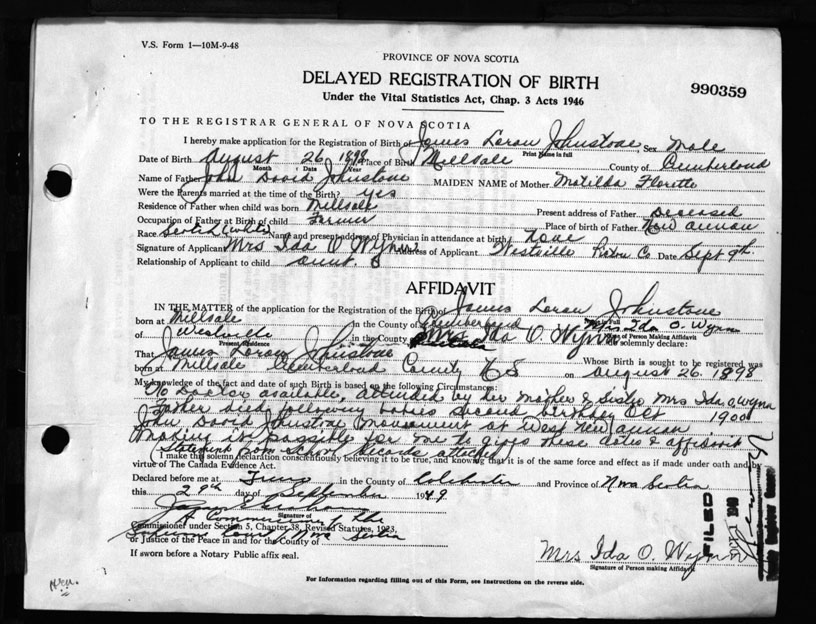 V.S. Form 1—10M-9-48
PROVINCE OF NOVA SCOTIA
DELAYED REGISTRATION OF BIRTH
990359
Under the Vital Statistics Act, Chap. 3 Acts 1946
TO THE REGISTRAR GENERAL OF NOVA SCOTIA
I hereby make application for the Registration of Birth of James Loran Johnstone Sex Male
Print Name in full
Date of Birth August 26 1898 Place of Birth Millsale County of Cumberland
Month Date Year
Name of Father John David Johnstone MAIDEN NAME of Mother Matilda Florette
Were the Parents married at the time of the Birth? yes
Residence of Father when child was born Millsale Present address of Father Deceased
Occupation of Father at Birth of child Farmer Place of birth of Father New Annan
Race Scotch (white) Name and present address of Physician in attendance at birth None
Signature of Applicant Mrs Ida O Wynn Address of Applicant Westville Pictou Co Date Sept 9th.
Relationship of Applicant to child Aunt.
AFFIDAVIT
IN THE MATTER of the application for the Registration of the Birth of James Loran Johnstone
born at Millsale in the County of Cumberland Mrs. Ida O. Wynn
of Westville in the County Ida O. Wynn do solemnly declare:
Present Residence Name of Person Making Affidavit
That James Loran Johnstone Whose Birth is sought to be registered was
born at Millsale Cumberland County N S on August 26. 1898
My knowledge of the fact and date of such Birth is based on the following Circumstances:
No Doctor available, attended by her mother & Sister Mrs Ida O Wynn
Father died following babies second birthday Oct 1900
John David Johnstone monument at West New Annan
Making it possible for me to give these dates & affidavit
(Statement from School Records attached)
I make this solemn declaration conscientiously believing it to be true, and knowing that it is of the same force and effect as if made under oath and by
virtue of The Canada Evidence Act.
Declared before me at Truro in the County of Colchester and Province of Nova Scotia
this 29th day of September 1949
Signature of
A Commissioner of the
Commissioner under Section 5, Chapter 38, Revised Statutes, 1923,
Supreme Court Nova Scotia
or Justice of the Peace in and for the County of
If sworn before a Notary Public affix seal.
Mrs Ida O. Wynn
Signature of Person making Affidavit
FILED
For Information regarding filling out of this Form, see Instructions on the reverse side.